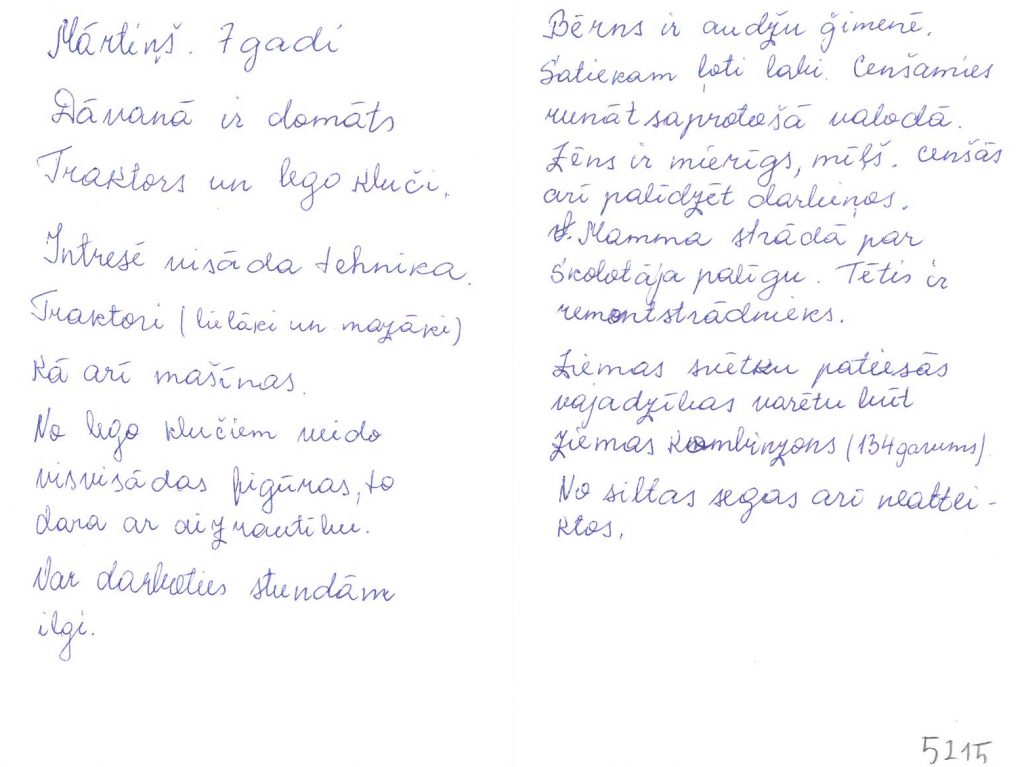 Mārtiņš. 7gadi
Dāvanā ir domāts
Traktors un lego kluči.
Intresē visāda tehnika.
Traktori (lielāki un mazāki)
kā arī mašīnas.
No lego klučiem veido
visvisādas figūras, to
dara ar aizrautību.
Var darboties stundām
ilgi.
Bērns ir audžu ģimenē.
Satiekam ļoti labi. Cenšamies
runāt saprotošā valodā.
Zēns ir mierīgs, mīļš. Cenšās
arī palīdzēt darbiņos.
Mamma strādā par
skolotāja palīgu. Tētis ir
remontstrādnieks.
Ziemas svētku patiesās
vajadzības varētu būt
ziemas kombinzons (134garums).
No siltas segas arī neattei-
ktos.
5215